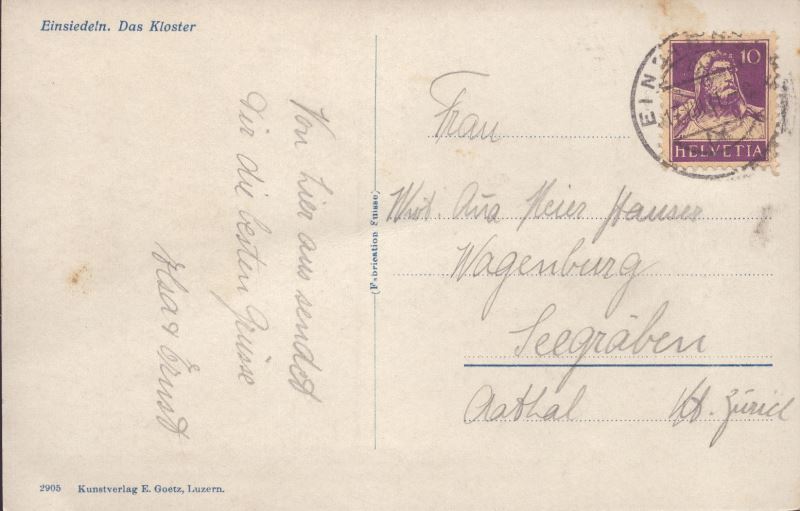 Einsiedeln. Das Kloster
Von hier aus sendet
Dir die besten Grüsse
Elsa & Ernst
2905 Kunstverlag E. Goetz, Luzern.
(Fabrication Suisse)
10
HELVETIA
EINS
Frau
Meier Hauser
Wagenburg
Seegräben
Aathal Kt. Zürich